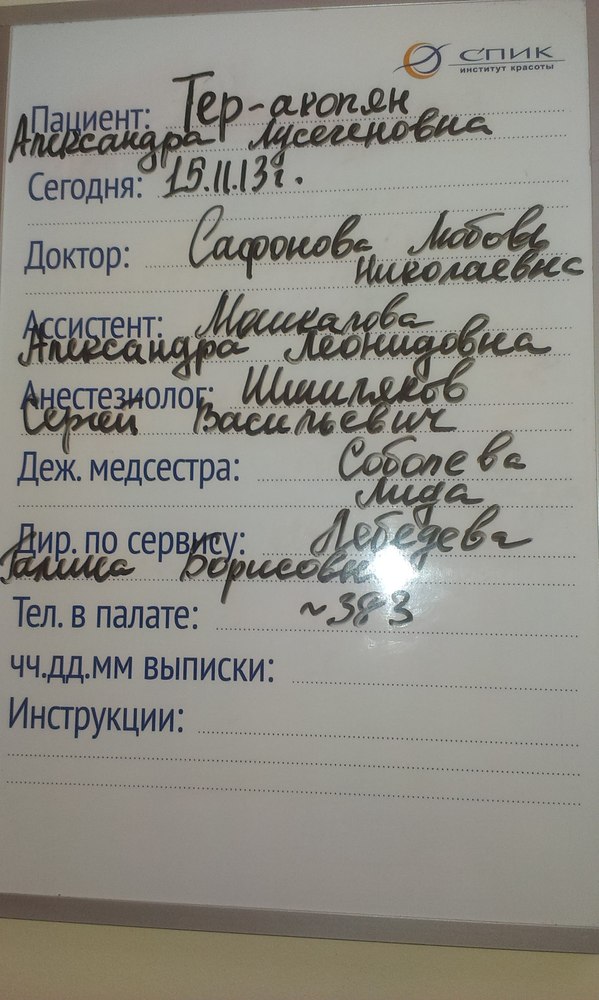 СПИК
институт красоты
Пациент: Тер-акопян
Александра Лусегеновна
Сегодня: 15.11.13г.
Доктор: Сафонова Любовь
Николаевна
Ассистент: Машкалова
Александра Леонидовна
Анестезиолог: Шишляков
Сергей Васильевич
Деж. медсестра: Соболева
Лида
Дир. по сервису: Лебедева
Галина Борисовна
Тел. в палате: ~383
чч.дд.мм выписки:
Инструкции: